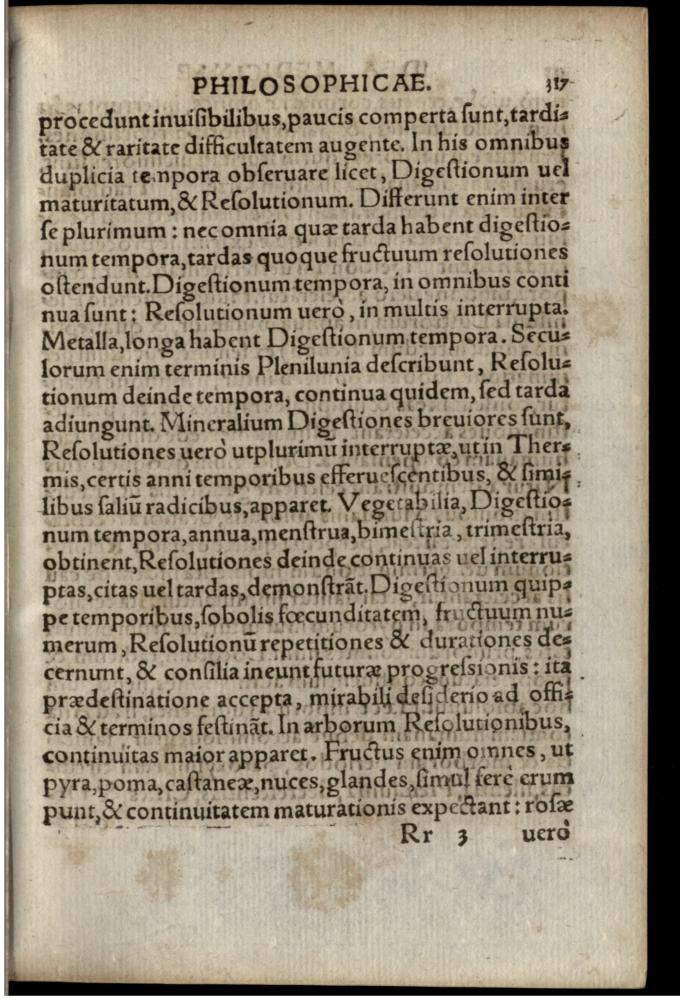 PHILOSOPHICAE. 317
procedunt inuiſibilibus,paucis comperta ſunt,tardi⸗
tate & raritate difficultatem augente. In his omnibus
duplicia tempora obſeruare licet, Digeſtionum uel
maturitatum,& Reſolutionum. Differunt enim inter
ſe plurimum : nec omnia quæ tarda habent digeſtio⸗
num tempora,tardas quoque fructuum reſolutiones
oſtendunt.Digeſtionum tempora, in omnibus conti
nua ſunt: Reſolutionum uerò, in multis interrupta.
Metalla,longa habent Digeſtionum tempora. Secu⸗
lorum enim terminis Plenilunia deſcribunt, Reſolu⸗
tionum deinde tempora, continua quidem, ſed tarda
adiungunt. Mineralium Digeſtiones breuiores ſunt,
Reſolutiones uerò utplurimũ interruptæ,ut in Ther⸗
mis,certis anni temporibus efferueſcentibus, & ſimi⸗
libus ſaliũ radicibus,apparet. Vegetabilia, Digeſtio⸗
num tempora,annua,menſtrua,bimeſtria, trimeſtria,
obtinent,Reſolutiones deinde continuas uel interru⸗
ptas,citas uel tardas,demonſtrãt.Digeſtionum quip⸗
pe temporibus,ſobolis fœcunditatem, fructuum nu⸗
merum, Reſolutionũ repetitiones & durationes de⸗
cernunt, & conſilia ineunt futuræ progreſsionis : ita
prædeſtinatione accepta, mirabili deſiderio ad offi⸗
cia & terminos feſtinãt. In arborum Reſolutionibus,
continuitas maior apparet. Fructus enim omnes, ut
pyra,poma,caſtaneæ,nuces,glandes,ſimul ferè erum
punt,& continuitatem maturationis expectant : roſæ
Rr 3 uerò